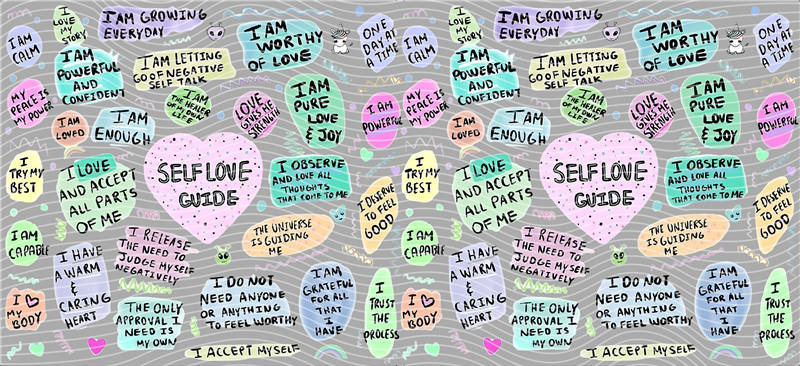 I AM
CALM
I
LOVE
MY
STORY
I AM GROWING
EVERYDAY
I AM
WORTHY
OF LOVE
ONE
DAY AT
A TIME
I AM
POWERFUL
AND
CONFIDENT
I AM LETTING
GO OF NEGATIVE
SELF TALK
MY
PEACE IS
MY POWER
I AM
LOVED
I AM
ENOUGH
I AM
THE HEALER
OF MY OWN
LIFE
LOVE
GIVES ME
STRENGTH
I AM
PURE
LOVE
& JOY
I AM
POWERFUL
I
TRY MY
BEST
I LOVE
AND ACCEPT
ALL PARTS
OF ME
SELF LOVE
GUIDE
I OBSERVE
AND LOVE ALL
THOUGHTS
THAT COME TO ME
I DESERVE
TO FEEL
GOOD
I AM
CAPABLE
I HAVE
A WARM
&
CARING
HEART
I RELEASE
THE NEED TO
JUDGE MYSELF
NEGATIVELY
THE UNIVERSE
IS GUIDING
ME
I
MY
BODY
THE ONLY
APPROVAL I
NEED IS
MY OWN
I DO NOT
NEED ANYONE
OR ANYTHING
TO FEEL WORTHY
I AM
GRATEFUL
FOR ALL
THAT
I
HAVE
I
TRUST
THE
PROCESS
I ACCEPT MYSELF
I AM
CALM
I
LOVE
MY
STORY
I AM GROWING
EVERYDAY
I AM
WORTHY
OF LOVE
ONE
DAY AT
A TIME
I AM
POWERFUL
AND
CONFIDENT
I AM LETTING
GO OF NEGATIVE
SELF TALK
MY
PEACE IS
MY POWER
I AM
LOVED
I AM
ENOUGH
I AM
THE HEALER
OF MY OWN
LIFE
LOVE
GIVES ME
STRENGTH
I AM
PURE
LOVE
& JOY
I AM
POWERFUL
I
TRY MY
BEST
I LOVE
AND ACCEPT
ALL PARTS
OF ME
SELF LOVE
GUIDE
I OBSERVE
AND LOVE ALL
THOUGHTS
THAT COME TO ME
I DESERVE
TO FEEL
GOOD
I AM
CAPABLE
I HAVE
A WARM
&
CARING
HEART
I RELEASE
THE NEED TO
JUDGE MYSELF
NEGATIVELY
THE UNIVERSE
IS GUIDING
ME
I
MY
BODY
THE ONLY
APPROVAL I
NEED IS
MY OWN
I DO NOT
NEED ANYONE
OR ANYTHING
TO FEEL WORTHY
I AM
GRATEFUL
FOR ALL
THAT
I
HAVE
I
TRUST
THE
PROCESS
I ACCEPT MYSELF